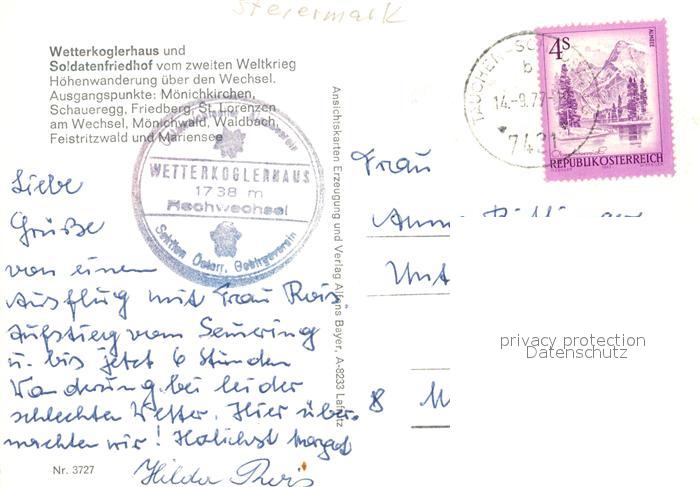 Steiermark
Wetterkoglerhaus und
Soldatenfriedhof vom zweiten Weltkrieg
Höhenwanderung über den Wechsel.
Ausgangspunkte: Mönichkirchen,
Schaueregg, Friedberg, St. Lorenzen
am Wechsel, Mönichwald, Waldbach,
Feistritzwald und Mariensee
WETTERKOGLERHAUS
1738 m
Hochwechsel
Sektion Österr. Gebirgsverein
Liebe
Grüße
von einem
Ausflug mit Frau Reis.
Aufstieg vom Semering
u. bis jetzt 6 Stunden
Wanderung bei leider
schlechten Wetter. Hier über-
nachten wir! Herzlichst Margot
Hilda Reis
Nr. 3727
Ansichtskarten Erzeugung und Verlag Alfons Bayer, A-8233 Lafnitz
4S
ALMSEE
REPUBLIK ÖSTERREICH
b
14.-9.77
7421
Frau
Unt
8 M
privacy protection
Datenschutz